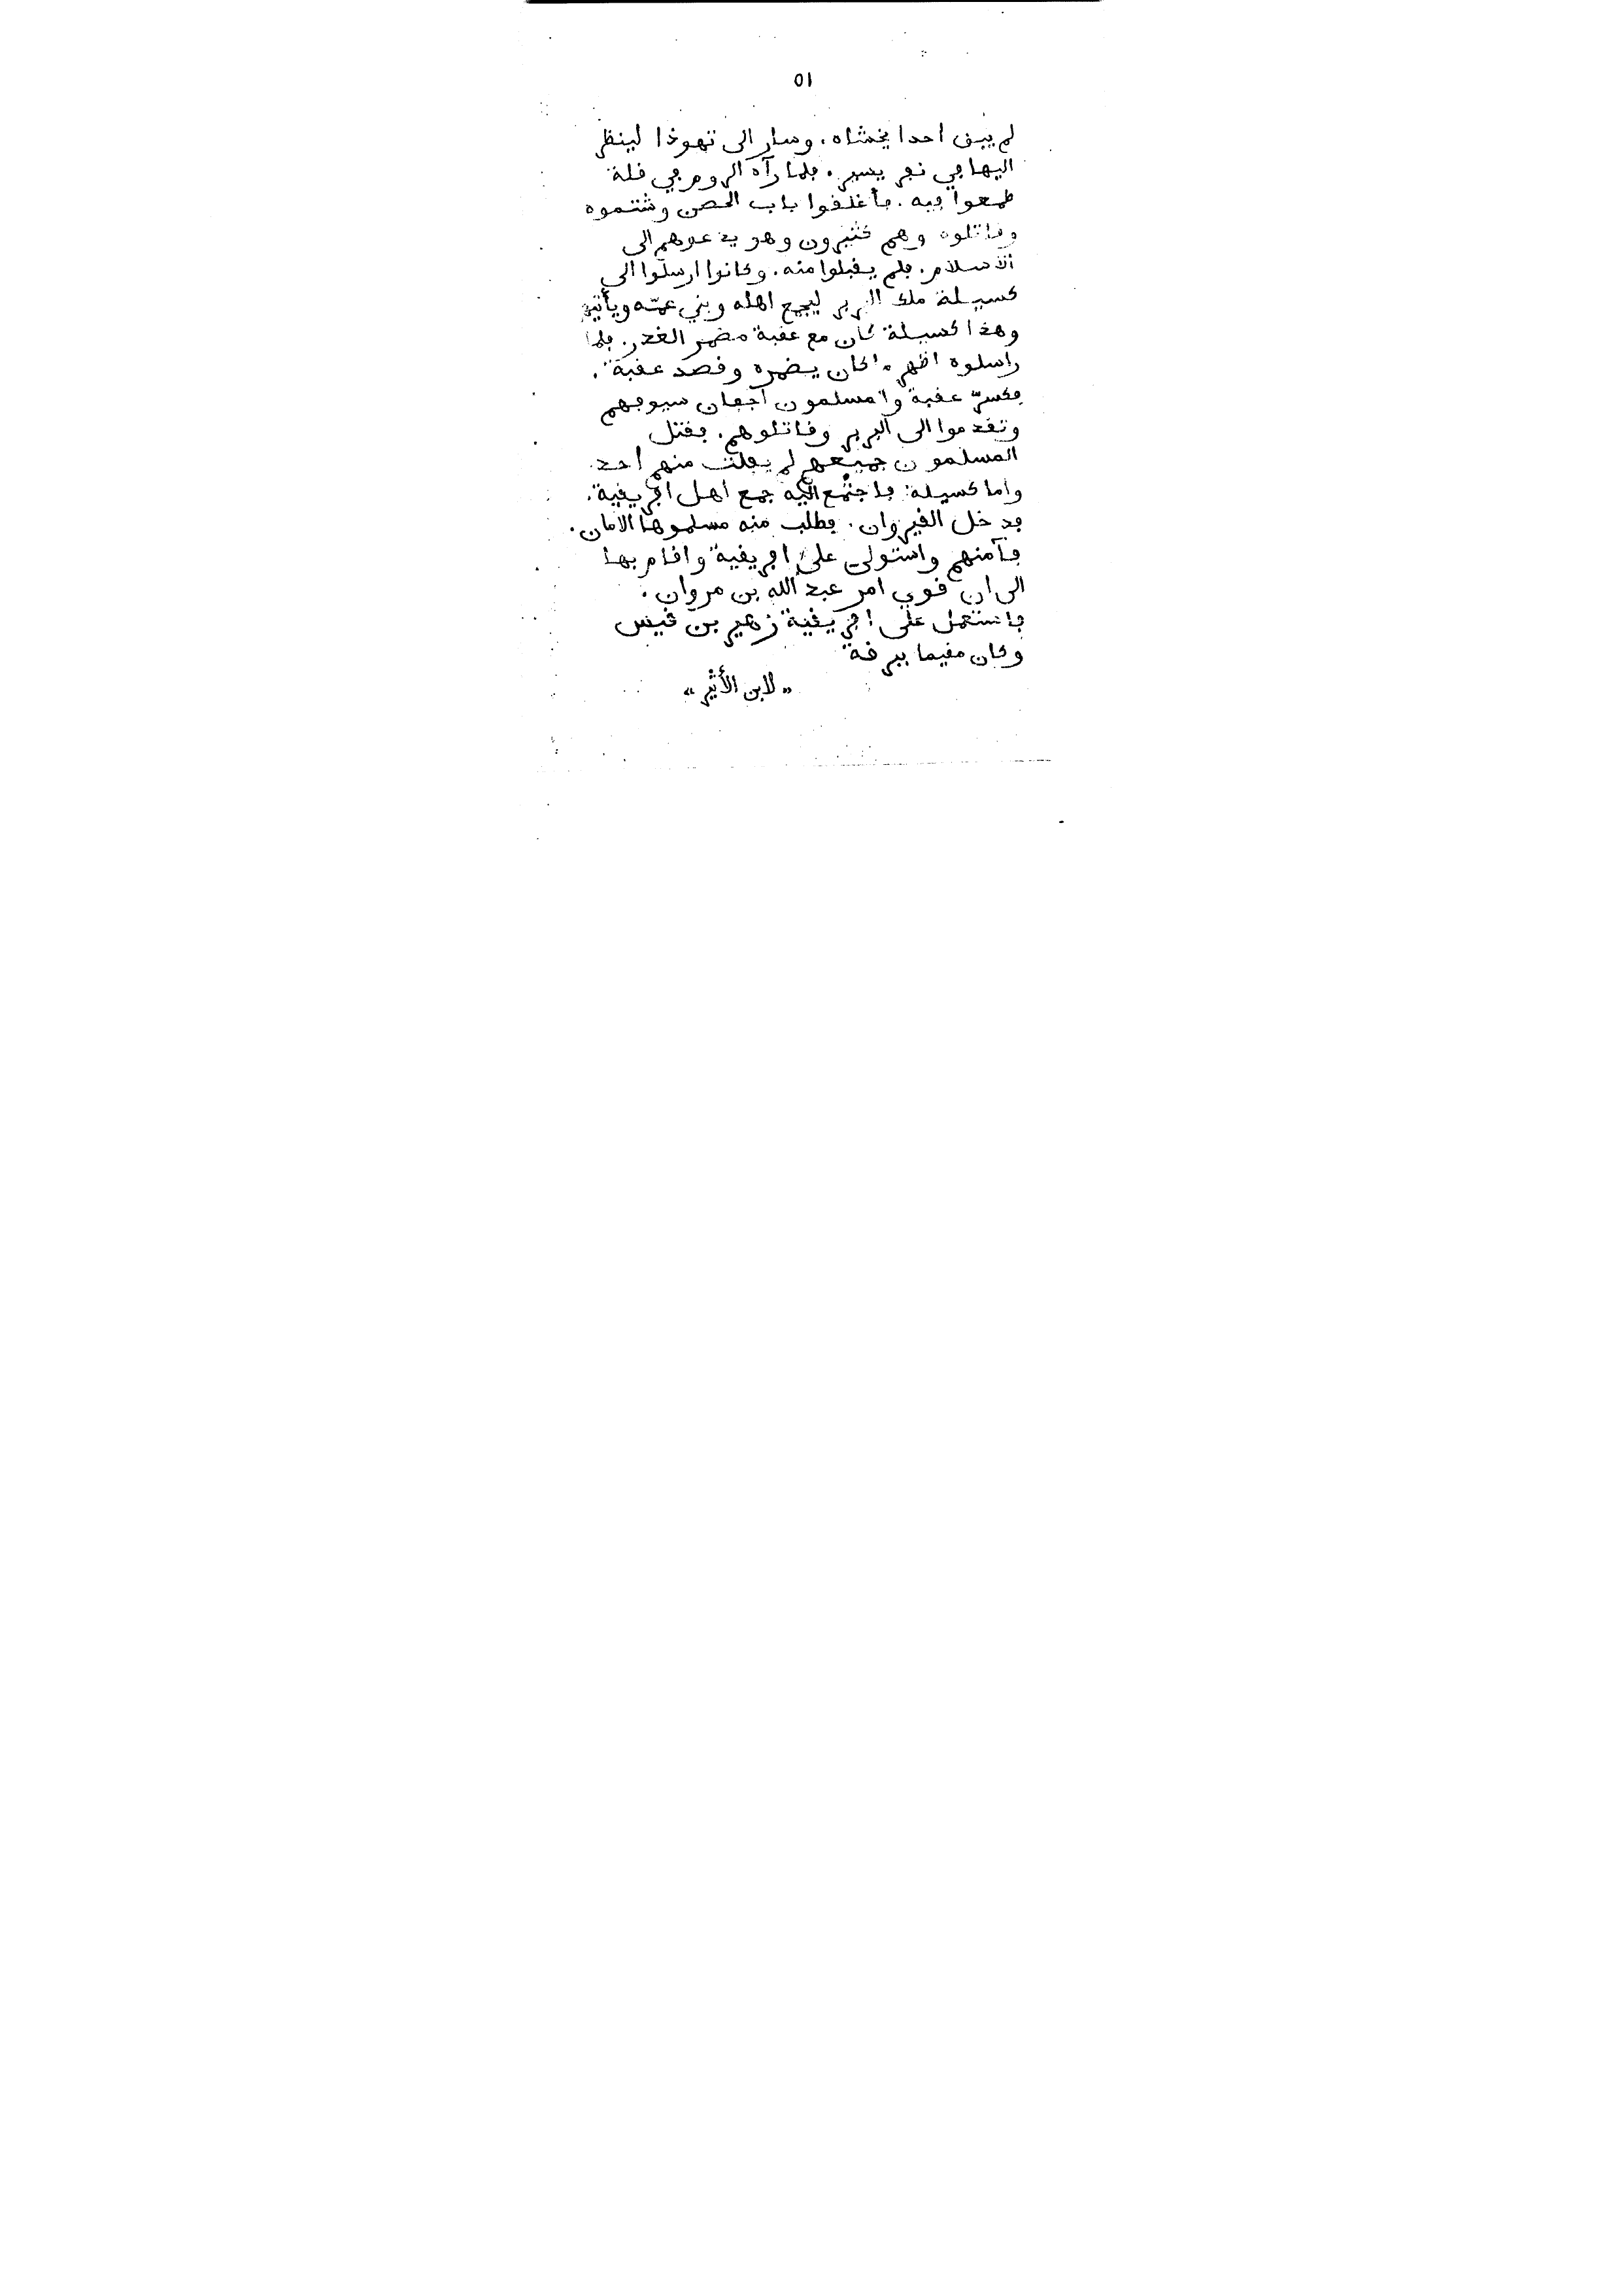 ٥١
لم يبق احدا يخشاه. وسار الى تهوذا لينظر
اليها في نفر يسير. فلما رآه الروم في قلة
طمعوا فيه. فأغلقوا باب الحصن وشتموه
وقاتلوه وهم كثيرون وهو يدعوهم الى
الاسلام. فلم يقبلوا منه. وكانوا ارسلوا الى
كسيلة ملك البربر ليجمع اهله وبني عمّه ويأتيه
وهذا كسيلة كان مع عقبة مضمر الغدر. فلما
راسلوه اظهر ما كان يضمره وقصد عقبة.
فكسّر عقبة والمسلمون اجفان سيوفهم
وتقدموا الى البربر وقاتلوهم. فقتل
المسلمون جميعهم لم يفلت منهم احد.
واما كسيلة: فاجتمع اليه جمع اهل افريقية.
فدخل القيروان. فطلب منه مسلموها الامان.
فأمنهم واستولى على افريقية واقام بها
الى ان قوي امر عبد الله بن مروان.
فاستعمل على افريقية زهير بن قيس
وكان مقيما ببرقة
«لابن الأثير»